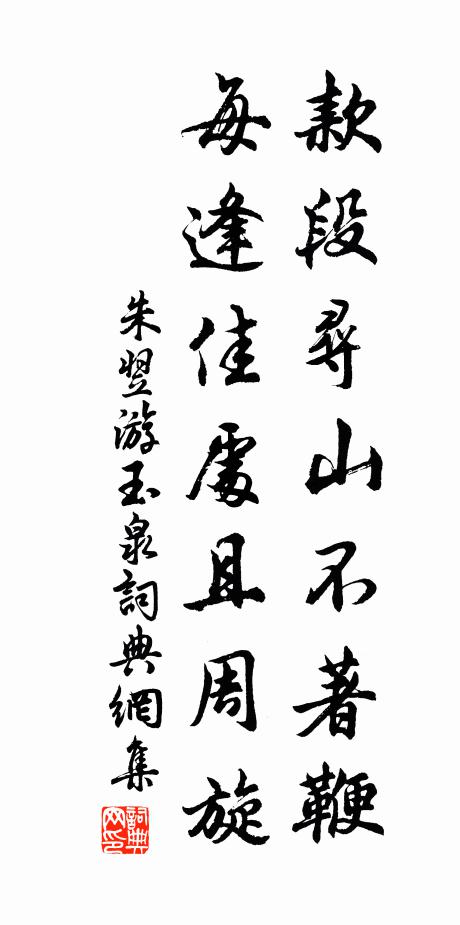 款段尋山不著鞭
每逢佳處且周旋
朱翌游玉泉詞典網集
詞典網印